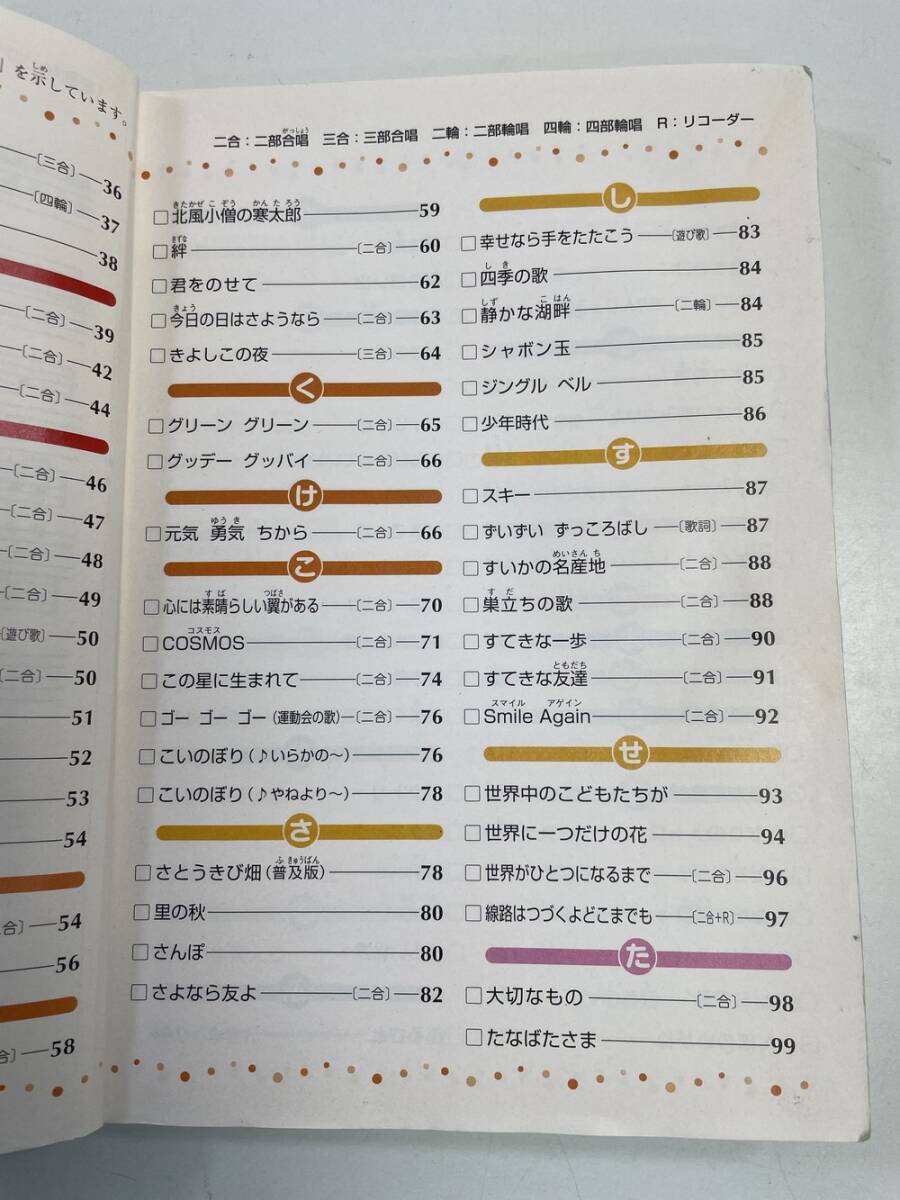 」を示しています。
しめ
〔三合〕—36
〔四輪〕—37
38
〔二合〕—39
〔二合〕—42
〔二合〕—44
〔二合〕—46
〔二合〕—47
〔二合〕—48
〔二合〕—49
〔遊び歌〕—50
〔二合〕—50
51
52
53
54
二合〕—54
56
合〕—58
二合：二部合唱 三合：三部合唱 二輪：二部輪唱 四輪：四部輪唱 R：リコーダー
がっしょう
きたかぜ こ ぞう かん た ろう
□北風小僧の寒太郎—59
きずな
□絆—〔二合〕—60
□君をのせて—62
きょう
□今日の日はさようなら—〔二合〕—63
□きよしこの夜—〔三合〕—64
く
□グリーン グリーン—〔二合〕—65
□グッデー グッバイ—〔二合〕—66
け
ゆう き
□元気 勇気 ちから—〔二合〕—66
こ
す ば つばさ
□心には素晴らしい翼がある—〔二合〕—70
コスモス
□COSMOS—〔二合〕—71
□この星に生まれて—〔二合〕—74
□ゴー ゴー ゴー（運動会の歌）—〔二合〕—76
□こいのぼり（♪いらかの〜）—76
□こいのぼり（♪やねより〜）—78
さ
ふ きゅうばん
□さとうきび畑（普及版）—78
□里の秋—80
□さんぽ—80
□さよなら友よ—〔二合〕—82
し
□幸せなら手をたたこう—〔遊び歌〕—83
し き
□四季の歌—84
しず こ はん
□静かな湖畔—〔二輪〕—84
□シャボン玉—85
□ジングル ベル—85
□少年時代—86
す
□スキー—87
□ずいずい ずっころばし—〔歌詞〕—87
めいさん ち
□すいかの名産地—〔二合〕—88
す だ
□巣立ちの歌—〔二合〕—88
□すてきな一歩—〔二合〕—90
ともだち
□すてきな友達—〔二合〕—91
スマイル アゲイン
□Smile Again—〔二合〕—92
せ
□世界中のこどもたちが—93
□世界に一つだけの花—94
□世界がひとつになるまで—〔二合〕—96
□線路はつづくよどこまでも—〔二合+R〕—97
た
□大切なもの—〔二合〕—98
□たなばたさま—99